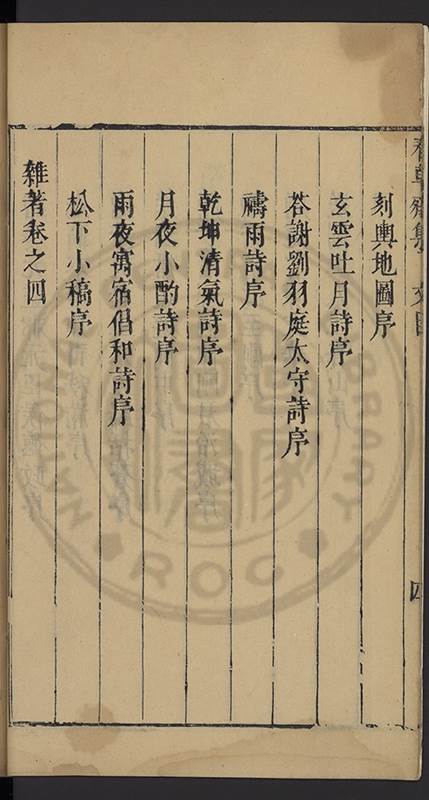 刻輿地圖序
玄雲吐月詩序
荅謝劉羽庭太守詩序
禱雨詩序
乾坤清氣詩序
月夜小酌詩序
雨夜寓宿倡和詩序
松下小稿序
雜著卷之四